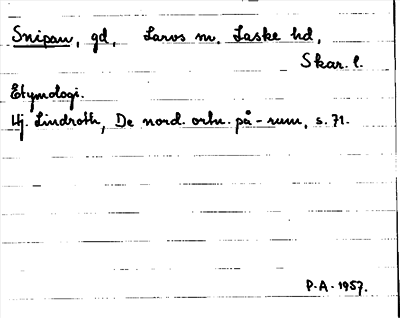 Snipan, gd, Larvs sn. Laske hd,
Skar. l.
Etymologi.
Hj. Lindroth, De nord. ortn. på -rum, s. 71.
P.A. 1957.